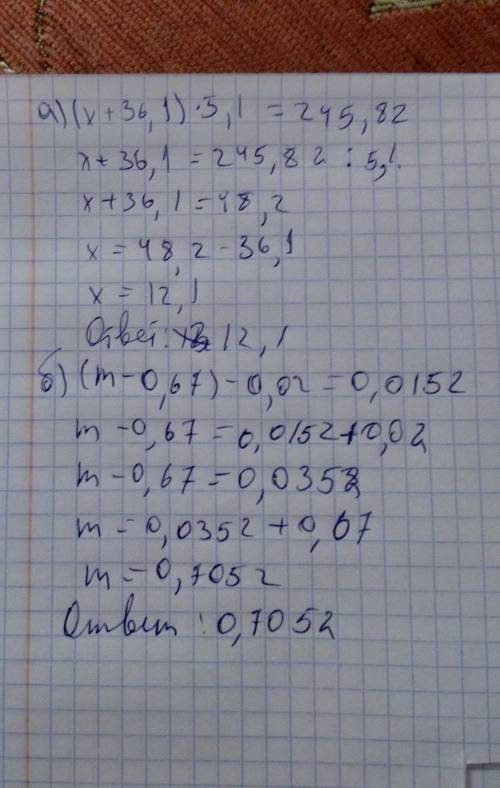 а) (x + 36,1) · 5,1 = 245,82
x + 36,1 = 245,82 : 5,1
x + 36,1 = 48,2
x = 48,2 - 36,1
x = 12,1
Ответ: 12,1
б) (m - 0,67) - 0,02 = 0,0152
m - 0,67 = 0,0152 + 0,02
m - 0,67 = 0,0352
m = 0,0352 + 0,67
m = 0,7052
Ответ: 0,7052